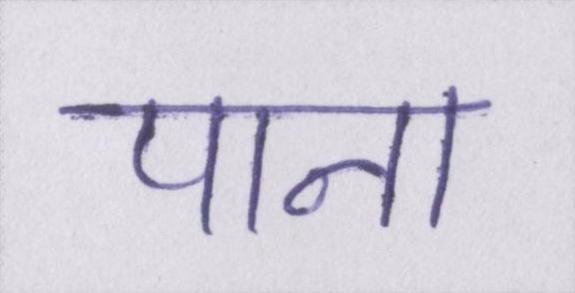 पाना